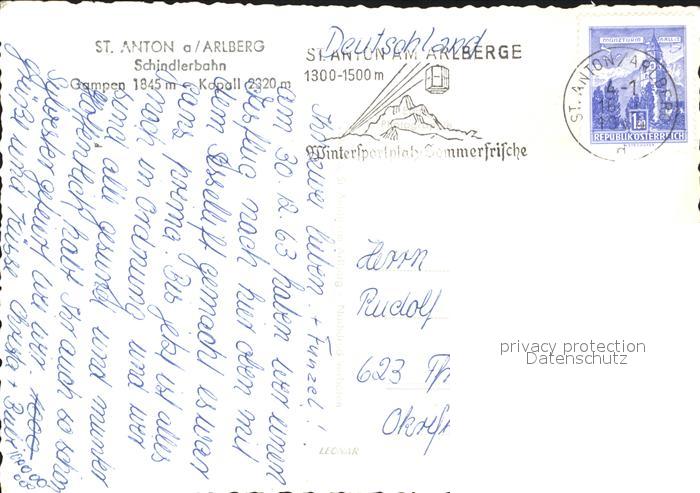 ST. ANTON a/ARLBERG
Schindlerbahn
Gampen 1845 m - Kapall 2320 m
Deutschland
ST. ANTON AM ARLBERGE
1300-1500 m
Wintersportplatz-Sommerfrische
ST. ANTON / ARLBERG
MÜNZTURM HALL i. T.
REPUBLIK ÖSTERREICH
Herrn
Rudolf
623
privacy protection
Datenschutz
LEONAR
Ihr lieben + !
am 30.12.63 haben wir unser
Ausflug nach hier oben mit
dem Sessellift gemacht es war
ganz prima. Bis jetzt ist alles
noch in Ordnung und wir
sind alle gesund und munter
Hoffentlich habt Ihr auch so schön
Silvester gefeiert wie wir.
Grüße und Küsse